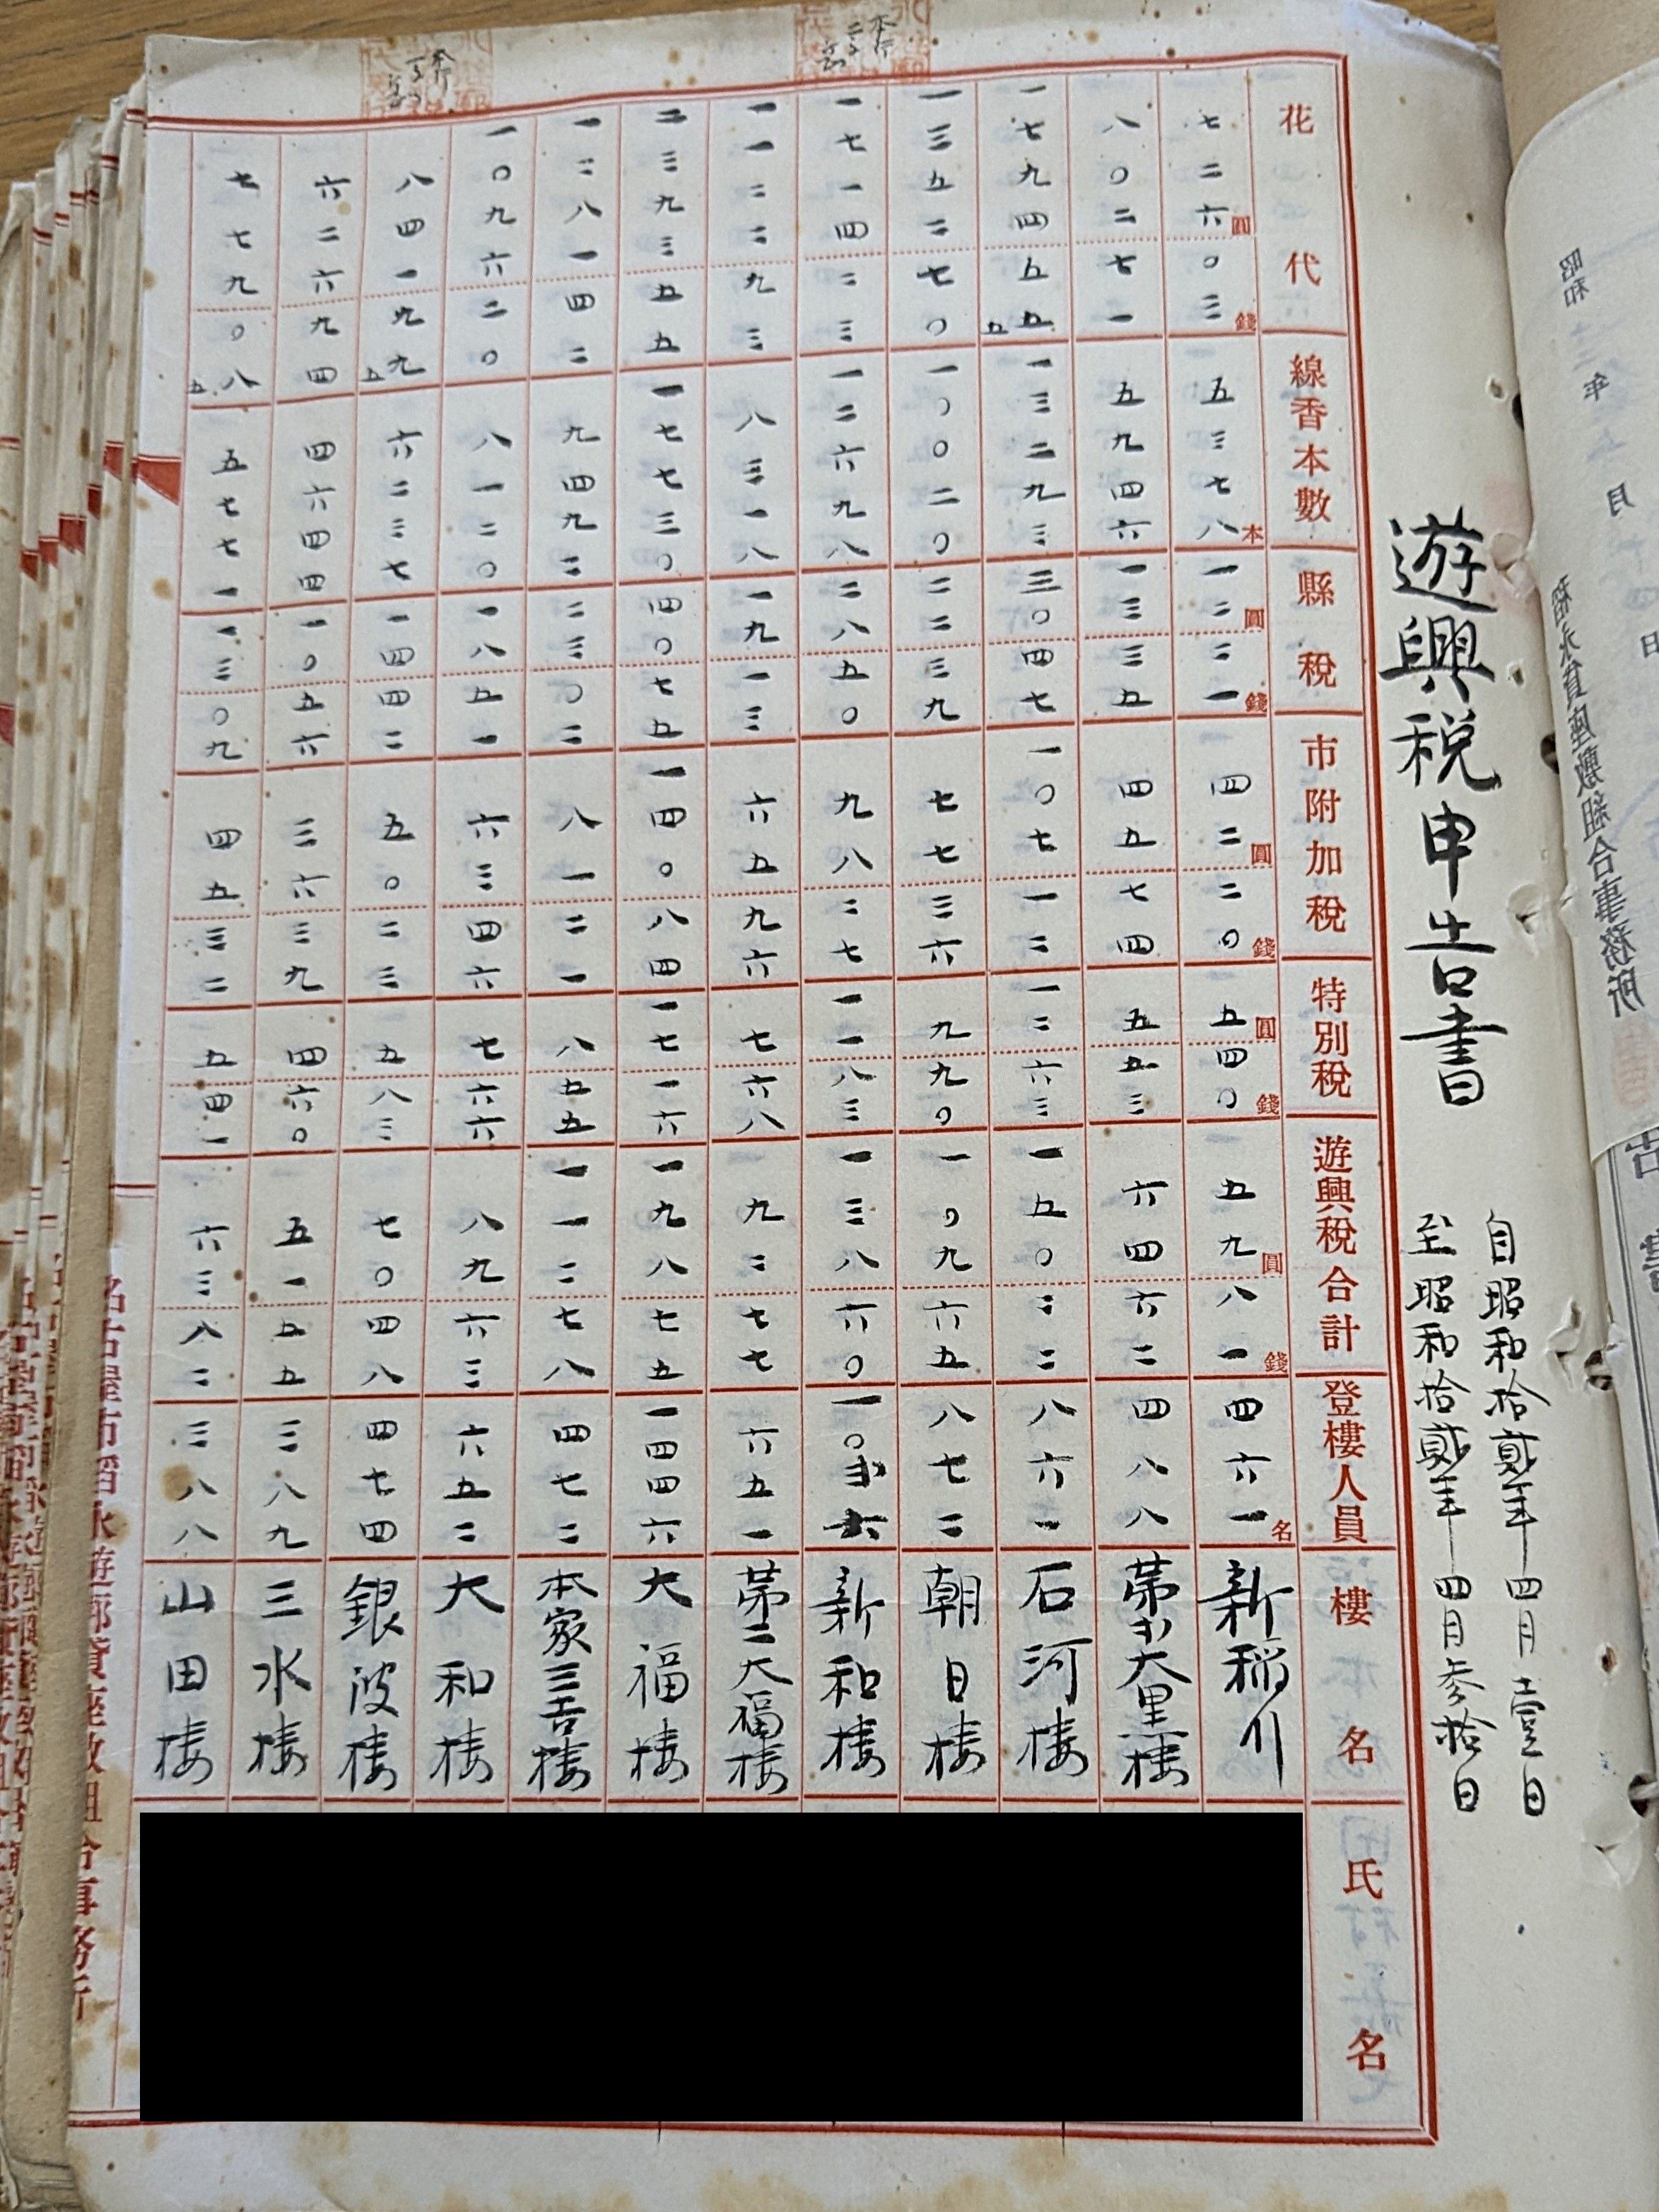 遊興税申告書
自昭和拾貳年四月壹日
至昭和拾貳年四月参拾日
花代 線香本數 縣税 市附加税 特別税 遊興税合計 登樓人員 樓名 氏名
七二六圓〇三錢 五三七八本 一二圓二一錢 四二圓二〇錢 五圓四〇錢 五九圓八一錢 四六一名 新稲川
八〇二七一 五九四六 一三三五 四五七四 五五三 六四六二 四八八 大黒楼
一七九四五五五 一三二九三 三〇四七 一〇七一二 一二六三 一五〇二二 八六一 石河楼
一三五二七〇 一〇〇二〇 二二三九 七七三六 九九〇 一〇九六五 八七二 朝日楼
一七一四二三 一二六九八 二八五〇 九八二七 一一八三 一三八六〇 新和楼
一一二二九三 八三一八 一九一三 六五九六 七六八 九二七七 六五一 第二大福楼
二三九三五五 一七七三〇 四〇七五 一四〇八四 一七一六 一九八七五 一四四六 大福楼
一二八一四二 九四九二 二三〇二 八一二一 八五五 一一二七八 四七二 本家三吉楼
一〇九六二〇 八一二〇 一八五一 六三四六 七六六 八九六三 六五二 大和楼
八四一九九五 六二三七 一四四二 五〇二三 五八三 七〇四八 四七四 銀波楼
六二六九四 四六四四 一〇五六 三六三九 四六〇 五一五五 三八九 三水楼
七七九〇八五 五七七一 一三〇九 四五三二 五四一 六三八二 三八八 山田楼